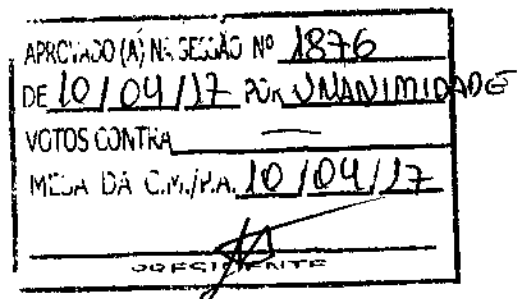 APROVADO (A) NA SESSÃO Nº 1876
DE 10/04/17 POR UNANIMIDADE
VOTOS CONTRA —
MESA DA C.M./P.A. 10/04/17
PRESIDENTE